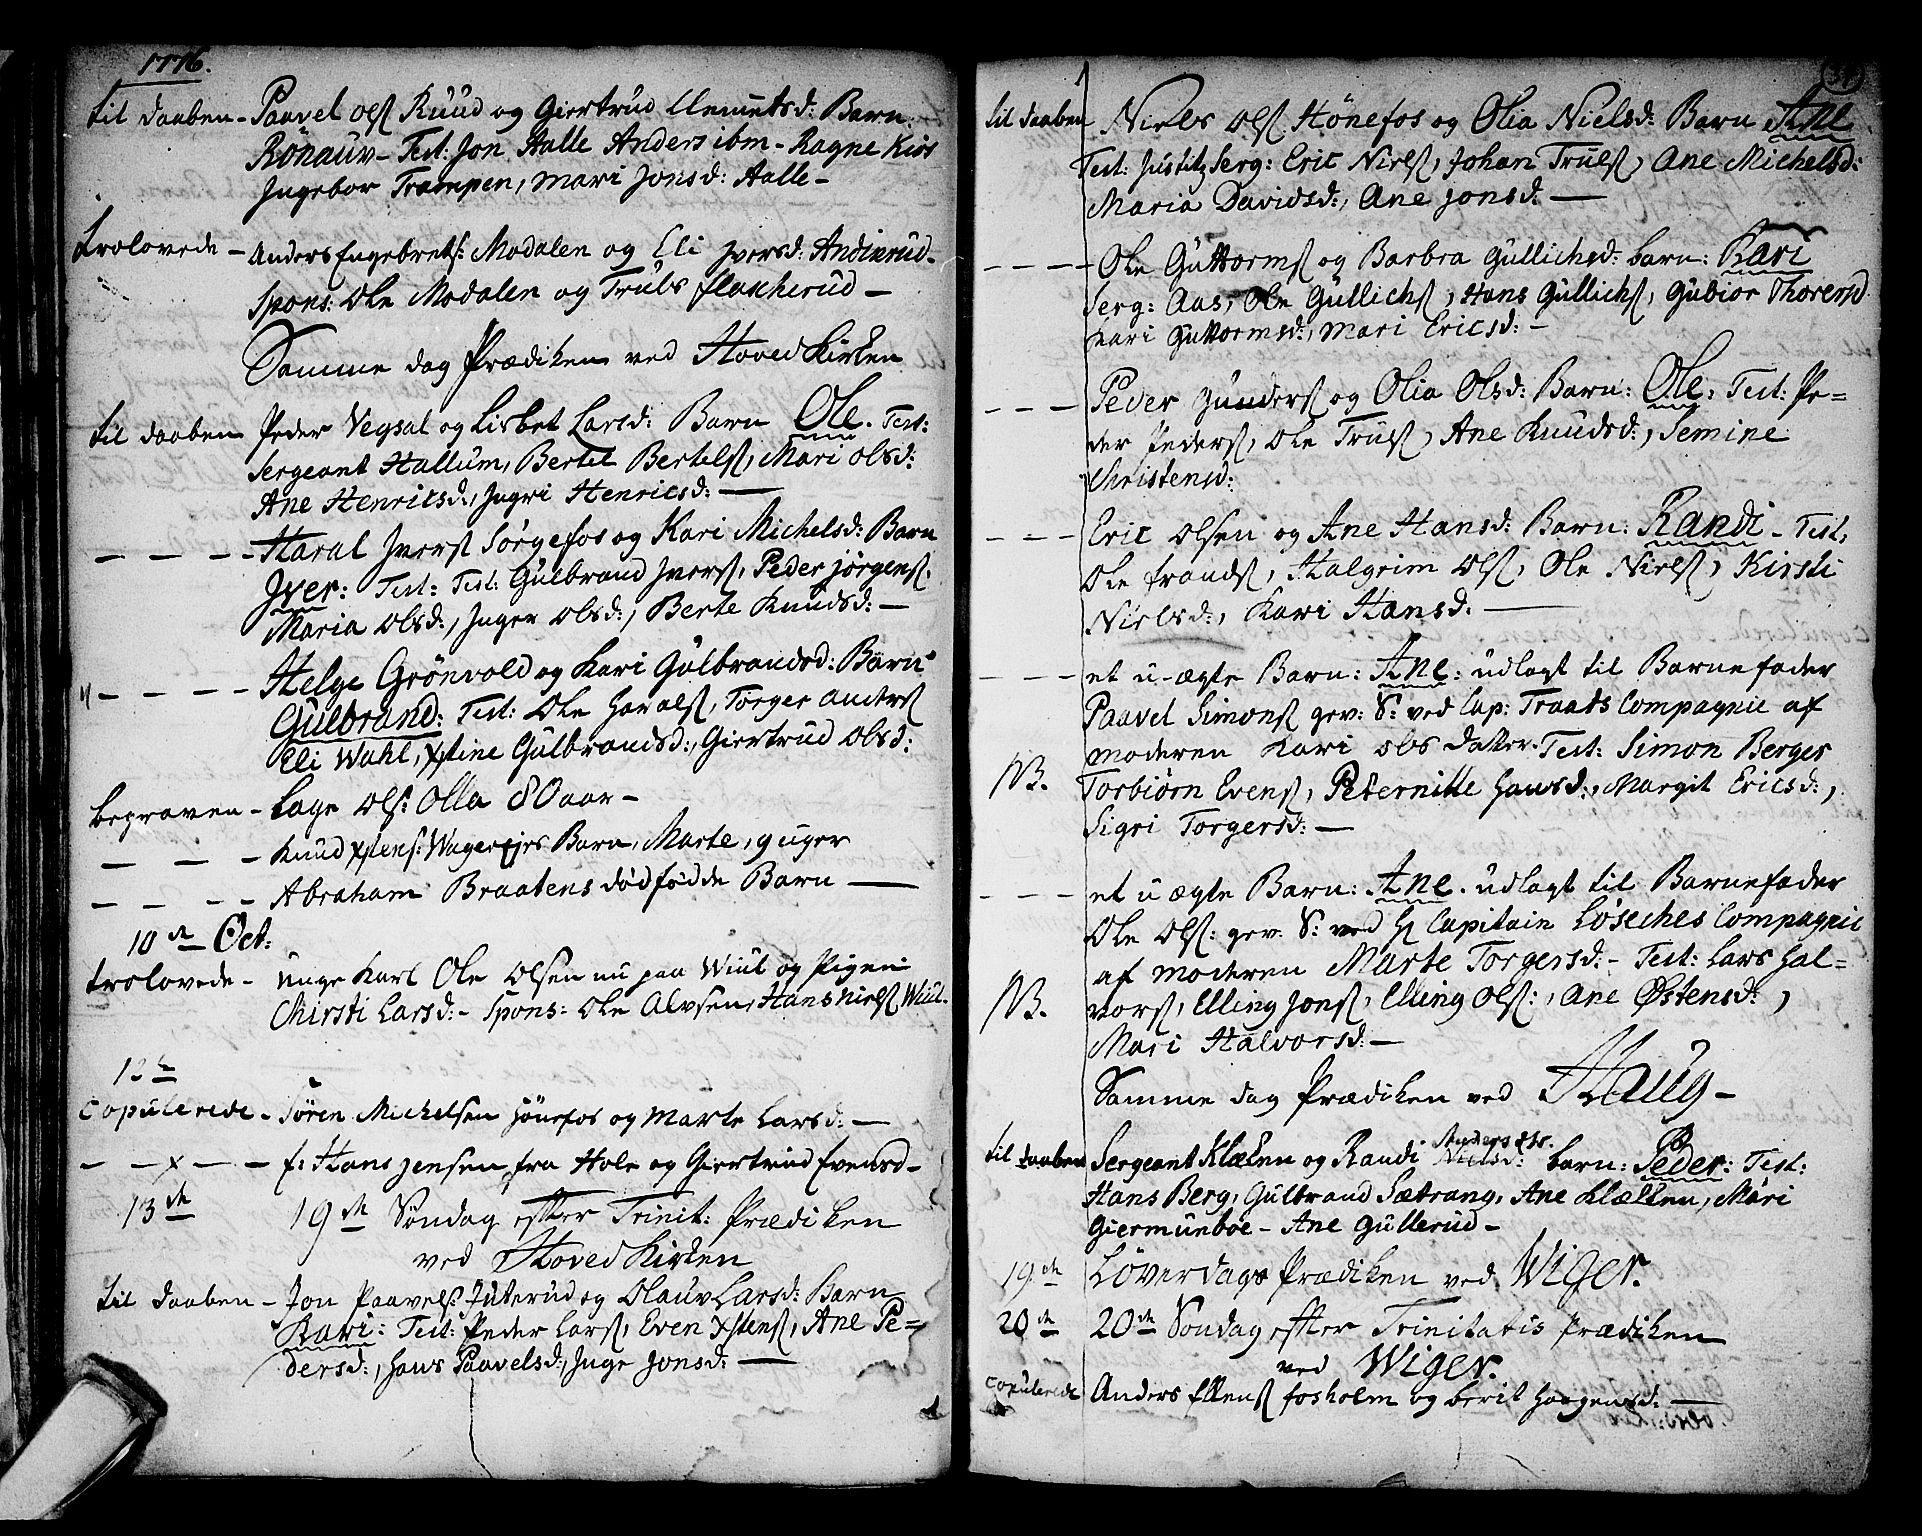 1776.
til daaben - Paavel Olsß Ruud og Giertrud Clemetsd: Barn
Rönauv - Test: Jon Halle Anders ibm - Ragne Kios
Ingebor Trampen, Mari Jonsd: Halle -
trolovede - Anders Engebrets: Modalen og Eli Jversd: Andinrud.
Spons: Ole Modalen og Truls flaskerud -
Samme dag Prædiken ved Hoved Kirken
til daaben Peder Vegsal og Lisbet Larsd: Barn Ole. Test:
Sergeant Hallum, Bertel Bertelsß, Mari Olsd:
Ane Henricsd:, Ingri Henricsd: —
— — — - Haral Jversß Sörgefos og Kari Michelsd: Barn
Jver: Test: Test: Gulbrand Jversß, Peder Jörgensß,
Maria Olsd:, Inger Olsd:, Berte Knudsd: —
— — — Helge Grönvold og Kari Gulbrandsd: Barn
Gulbrand: Test: Ole Haralsß, Torger Andersß
Eli Wahl, Xstine Gulbrandsd:, Giertrud Olsd:
begraven - Lage Ols: Olla 80 aar -
— — — - Knud Xstens: Wagerejes Barn, Marte, 9 uger
— — — - Abraham Braatens dödfödde Barn —
10de Oct:
trolovede - unge Karl Ole Olsen nu paa Wiul og Pigen
Chirsti Larsd: - Spons: Ole Alvsen, Hans Nielsß Wiul.
12te
Copulerede - Sören Michelsen Hönefos og Marte Larsd: —
— — x — — f: Hans Jensen fra Hole og Giertrud Evensd -
13de 19de Söndag efter Trinit: Prædiken
ved Hoved Kirken
til daaben - Jon Paavels: Juterud og Olauv Larsd: Barn
Kari: Test: Peder Larsß, Even Xstensß, Ane Pe=
dersd:, Hans Paavelsd:, Inge Jonsd: —
til daaben Niels Olsß Hönefos og Olia Nielsd: Barn Ane
Test: Justitz Serg: Eric Nielsß, Johan Trulsß, Ane Michelsd:
Maria Davidsd:, Ane Jonsd: —
— — — - Ole Guttormsß og Barbra Gullichsd: barn: Kari
Serg: Aas, Ole Gullichsß, Hans Gullichsß, Gubior Thoresd
Kari Guttormsd:, Mari Ericsd: -
— — — Peder Gundersß og Olia Olsd: Barn: Ole, Test: Pe=
der Pedersß, Ole Trulsß, Ane Knudsd:, Semine
Christensd:
— — — Eric Olsen og Ane Hansd: Barn: Randi - Test:
Ole frandsß, Halgrim Olsß, Ole Nielsß, Kirsti
Nielsd:, Kari Hansd: —
— — — et u-ægte Barn: Ane: udlagt til Barnefader
Paavel Simonsß gev: S: ved Cap: Traats Compagnie af
moderen Kari Ols datter. Test: Simon Berger
NB. Torbiörn Evensß, Peternille Hansd:, Margit Ericsd:,
Sigri Torgersd: —
— — — et u ægte Barn: Ane. udlagt til Barnefader
Ole Olsß: gev: S: ved Hr Capitain Löseches Compagnie
af moderen Marte Torgersd: - Test: Lars Hal=
NB. vorsß, Elling Jonsß, Elling Olsß:, Ane Østensd:,
Mari Halvorsd: —
Samme dag Prædiken ved Haug -
til daaben Sergeant Klækken og Randi Nielsd: Anders dtr. barn: Peder: Test:
Hans Berg, Gulbrand Sætrang, Ane Klækken, Mari
Giermunboe - Ane Gullerud -
19de Löverdags Prædiken ved Wiger.
20de 20de Söndag efter Trinitatis Prædiken
ved Wiger.
Copulerede Anders Ellensß fosholm og berit Haagensd: —